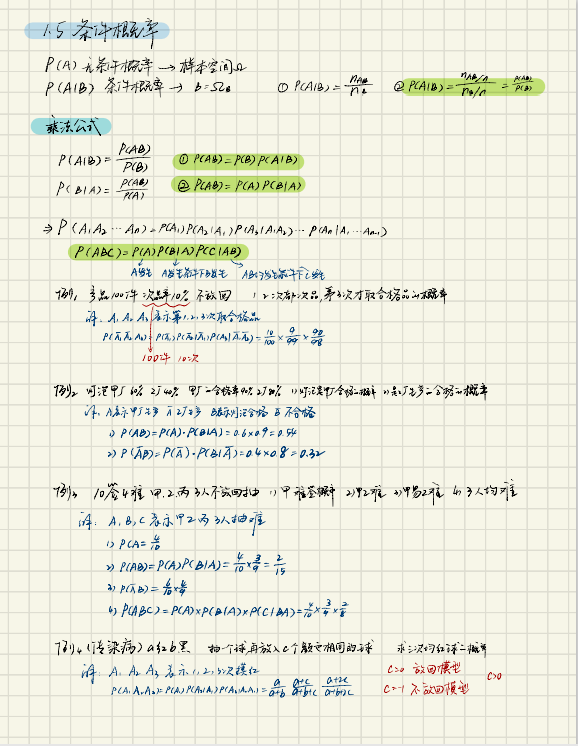 1.5 条件概率
P(A) 无条件概率 → 样本空间Ω
P(A|B) 条件概率 → B=Ω_B ① P(A|B)=n_AB/n_B ② P(A|B)=(n_AB/n)/(n_B/n)=P(AB)/P(B)
乘法公式
P(A|B)=P(AB)/P(B) ① P(AB)=P(B)P(A|B)
P(B|A)=P(AB)/P(A) ② P(AB)=P(A)P(B|A)
⇒ P(A₁A₂…An)=P(A₁)P(A₂|A₁)P(A₃|A₁A₂)…P(An|A₁…An-1)
P(ABC)=P(A)P(B|A)P(C|AB)
A发生 A发生条件下B发生 AB发生条件下C发生
例1. 产品100件 次品率10% 不放回 1,2次都次品,第3次才取合格品的概率
解: A₁ A₂ A₃ 表示第1,2,3次取合格品
P(A̅₁A̅₂A₃) P(A̅₁)P(A̅₂|A̅₁)P(A₃|A̅₁A̅₂)=10/100×9/99×90/98
100件 10次
例2 灯泡甲厂60% 乙厂40% 甲厂合格率90% 乙厂80% 1) 灯泡是甲厂合格的概率 2) 是乙厂生产合格的概率
解: A表示甲厂生产 A̅乙厂生产 B表示灯泡合格 B̅ 不合格
1) P(AB)=P(A)·P(B|A)=0.6×0.9=0.54
2) P(A̅B)=P(A̅)·P(B|A̅)=0.4×0.8=0.32
例3 10签4难 甲.乙.丙3人不放回抽 1) 甲难签概率 2) 甲乙难 3) 甲易乙难 4) 3人均难
解: A, B, C 表示甲乙丙3人抽难
1) P(A=4/10
2) P(AB)=P(A)P(B|A)=4/10×3/9=2/15
3) P(A̅B)=6/10×4/9
4) P(ABC)=P(A)×P(B|A)×P(C|BA)=4/10×3/9×2/8
例4 (传染病) a红b黑 抽一个球,再放入c个颜色相同的球 求三次均红球概率
解: A₁ A₂ A₃ 表示1,2,3次摸红 c=0 放回模型
P(A₁A₂A₃)=P(A₁)P(A₂|A₁)P(A₃|A₂A₁)=a/(a+b) (a+c)/(a+b+c) (a+2c)/(a+b+2c) c=-1 不放回模型 c>0